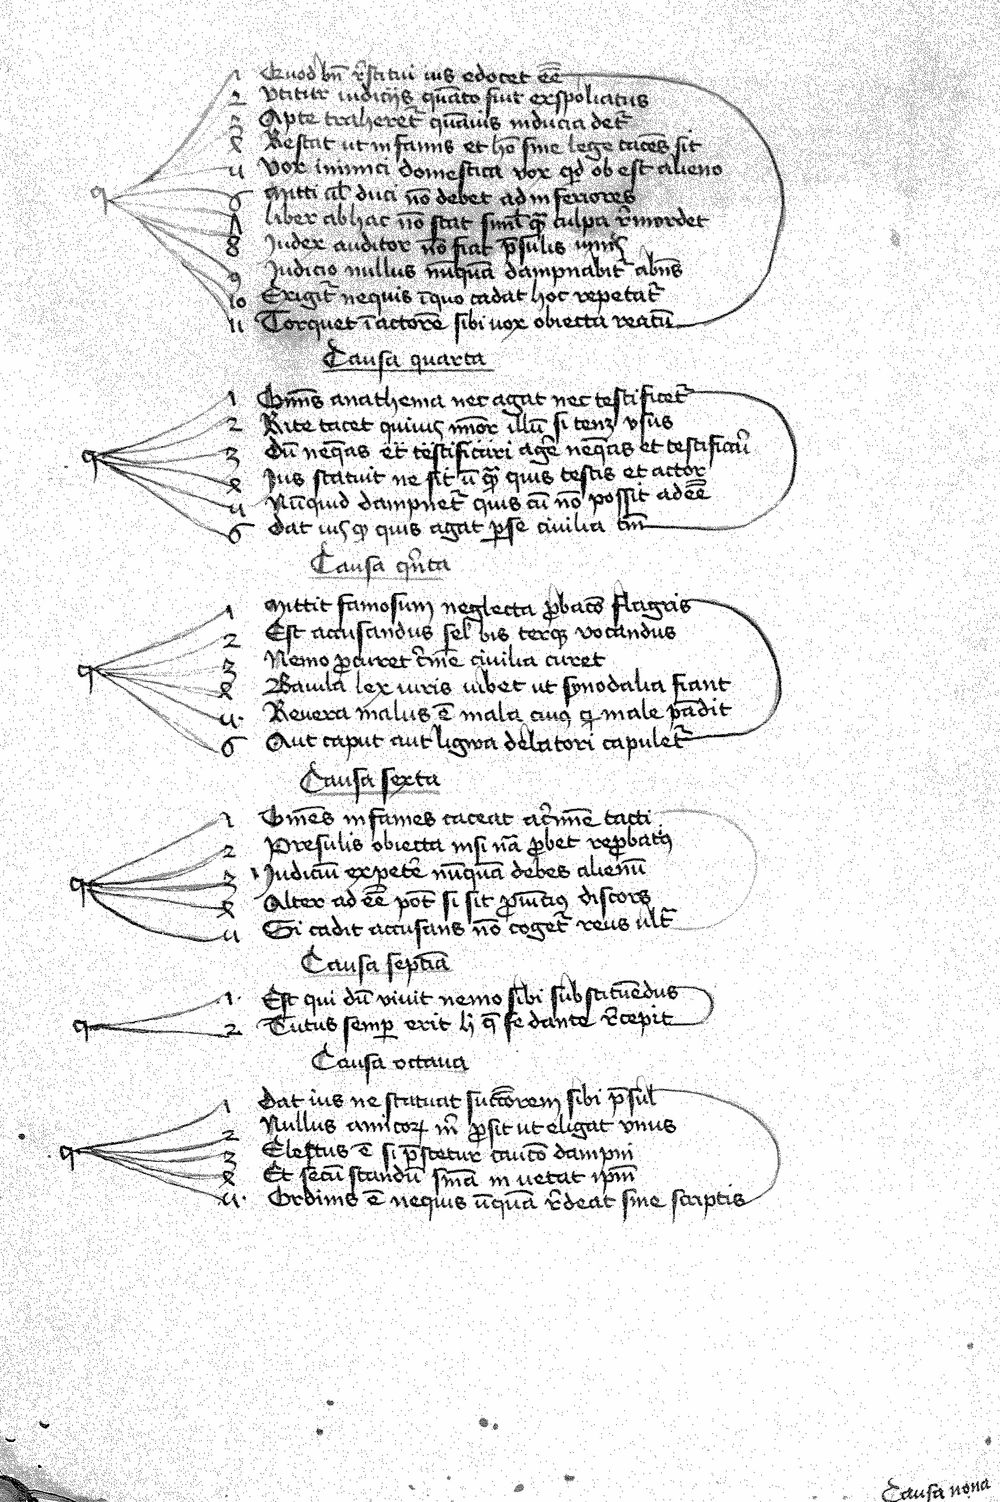 1 Quod bn̄ r̄stitui ius edocet ēē
2 Utitur iudiciis quāto fiut exspoliatus
3 Apte traheret᷑ quāuis inducia det᷑
4 Restat ut infamis et hō sine lege tacēs sit
5 Vox inimici domestica vox qđ ob est alieno
6 Mitti al' duci nō debet ad inferiores
7 Liber ab hac nō stat siml' q̄ culpa r̄mordet
8 Iudex auditor nō fiat p̄sulis
9 Iudicio nullus nūquā dampnabit᷑ abn̄s
10 Exigit᷑ nequis ī quo cadat hoc repetat᷑
11 Torquet ī actorē sibi uox obiecta reatū
Causa quarta
q 1 Om̄s anathema nec agat nec testificet᷑
2 Rite tacet quiuis mīor illū si ten; vsus
3 Dū neq̄as et testificari agē neq̄as et testificari
4 Ius statuit ne sit ū q̄ quis testis et actor
5 Nūquid dampnet᷑ quis cū nō possit adēē
6 Dat ius qꝫ quis agat ꝑ se ciuilia tm̄
Causa qn̄ta
q 1 Mittit famosum neglecta ꝓbatō flagris
2 Est accusandus sel' bis terqꝫ vocandus
3 Nemo ꝓcuret c̄mīe ciuilia curet
4 Paula lex iuris iubet ut synodalia fiant
5 Reuera malus ē mala cuiꝰ qi male p̄adit
6 Aut caput aut ligwa delatori capulet᷑
Causa sexta
q 1 Om̄es infames taceat ac̄mīne tacti
2 Presulis obiecta nisi nā ꝓbet reꝓbatꝰ
3 Iudiciū expetē nūquā debes alienū
4 Alter ad ēē pōt si sit ꝓuīciꝰ discors
5 Si cadit accusans nō coget᷑ reus ult᷑
Causa septīa
q 1 Est qui dū viuit nemo sibi substituēdus
2 Tutus semꝑ erit li q̄ se dante r̄cepit
Causa octaua
q 1 Dat ius ne statuat succ̄orem sibi p̄sul
2 Nullus amicoꝝ nr̄i ꝓsit ut eligat vnus
3 Electus ē si p̄stetur cautō dampni
4 Et secū standū sm̄a in uetat ip̄m
5 Ordinis ē nequis ūquā r̄deat sine scriptis
Causa nona